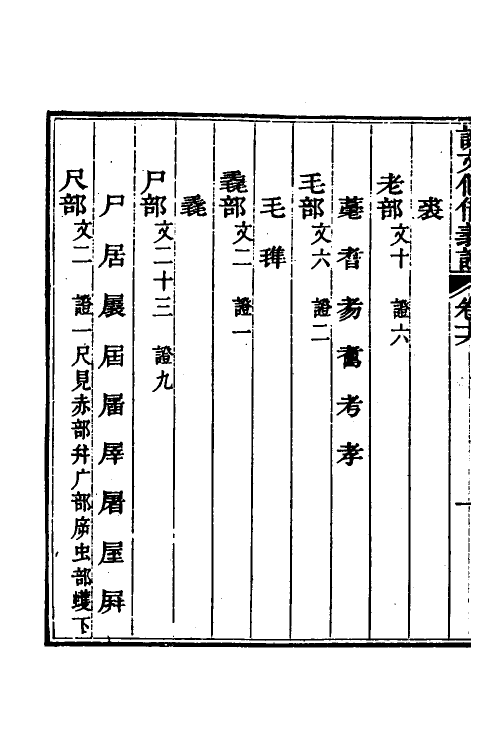 說文假借義證 卷十六 一
裘
老部 文十 證六
耋 耆 考 孝
毛部 文六 證二
毛
毳部 文二 證一
毳
尸部 文二十三 證九
尸 居 展 屆 屠 屋 屏
尺部 文二 證一 尺見赤部幷广部㡿虫部蠖下